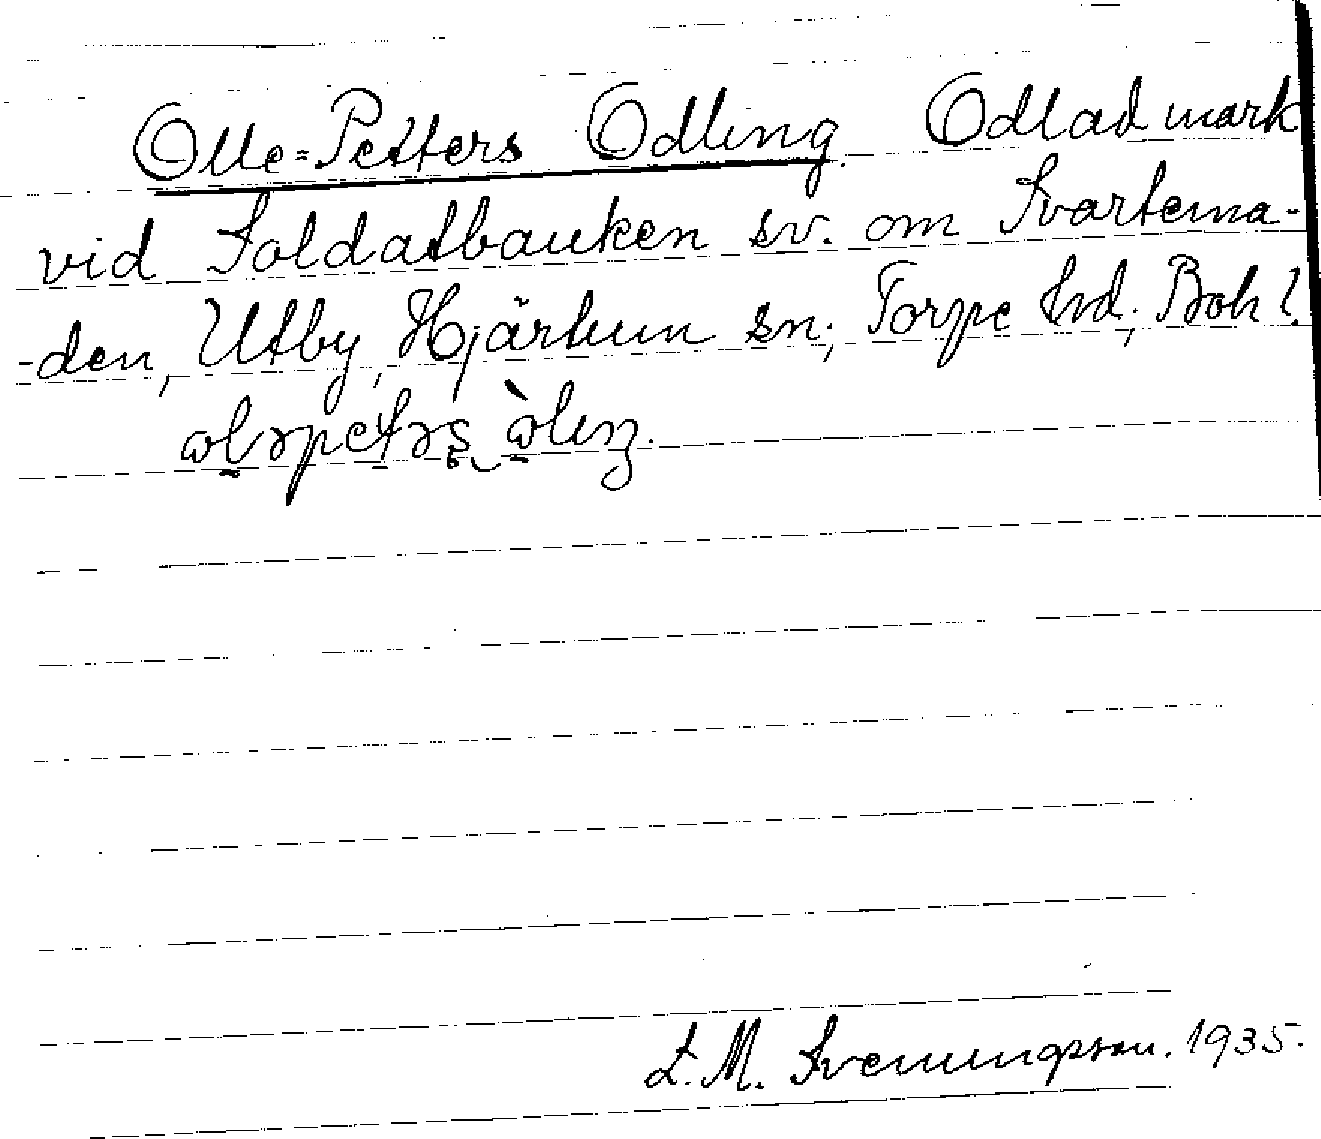 Olle=Petters Odling. Odlad mark
vid Soldatbauken sv. om Svartema-
-den, Utby, Hjärtum sn; Torpe hd; Bohl.
L. M. Svenungsson. 1935.